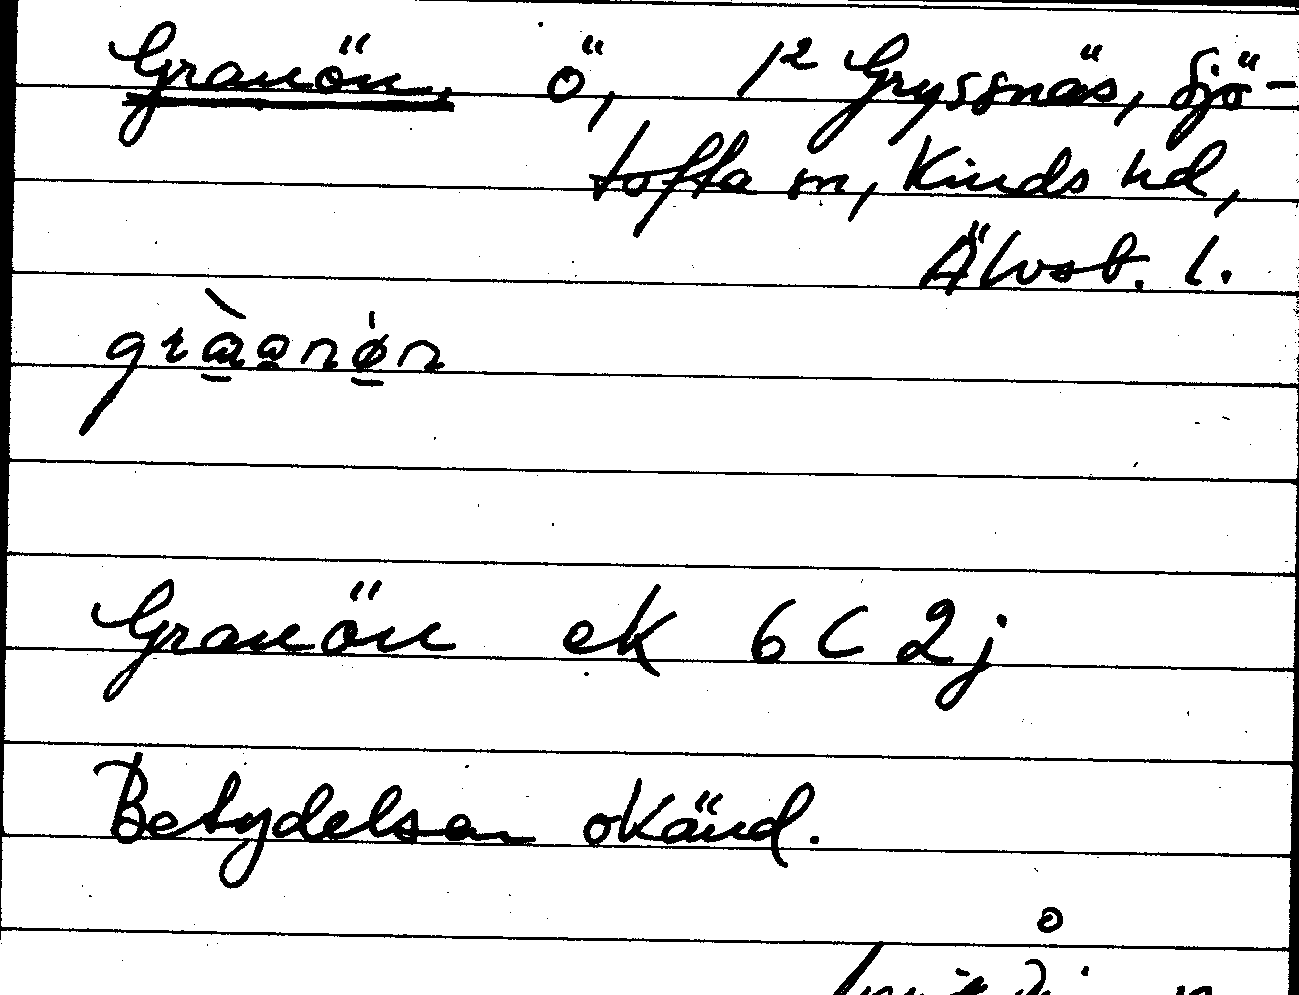 Granön, ö, 1² Gryssnäs, Sjö-
tofta sn, Kinds hd,
Älvsb. l.
Granön ek 6 C 2 j
Betydelsen okänd.